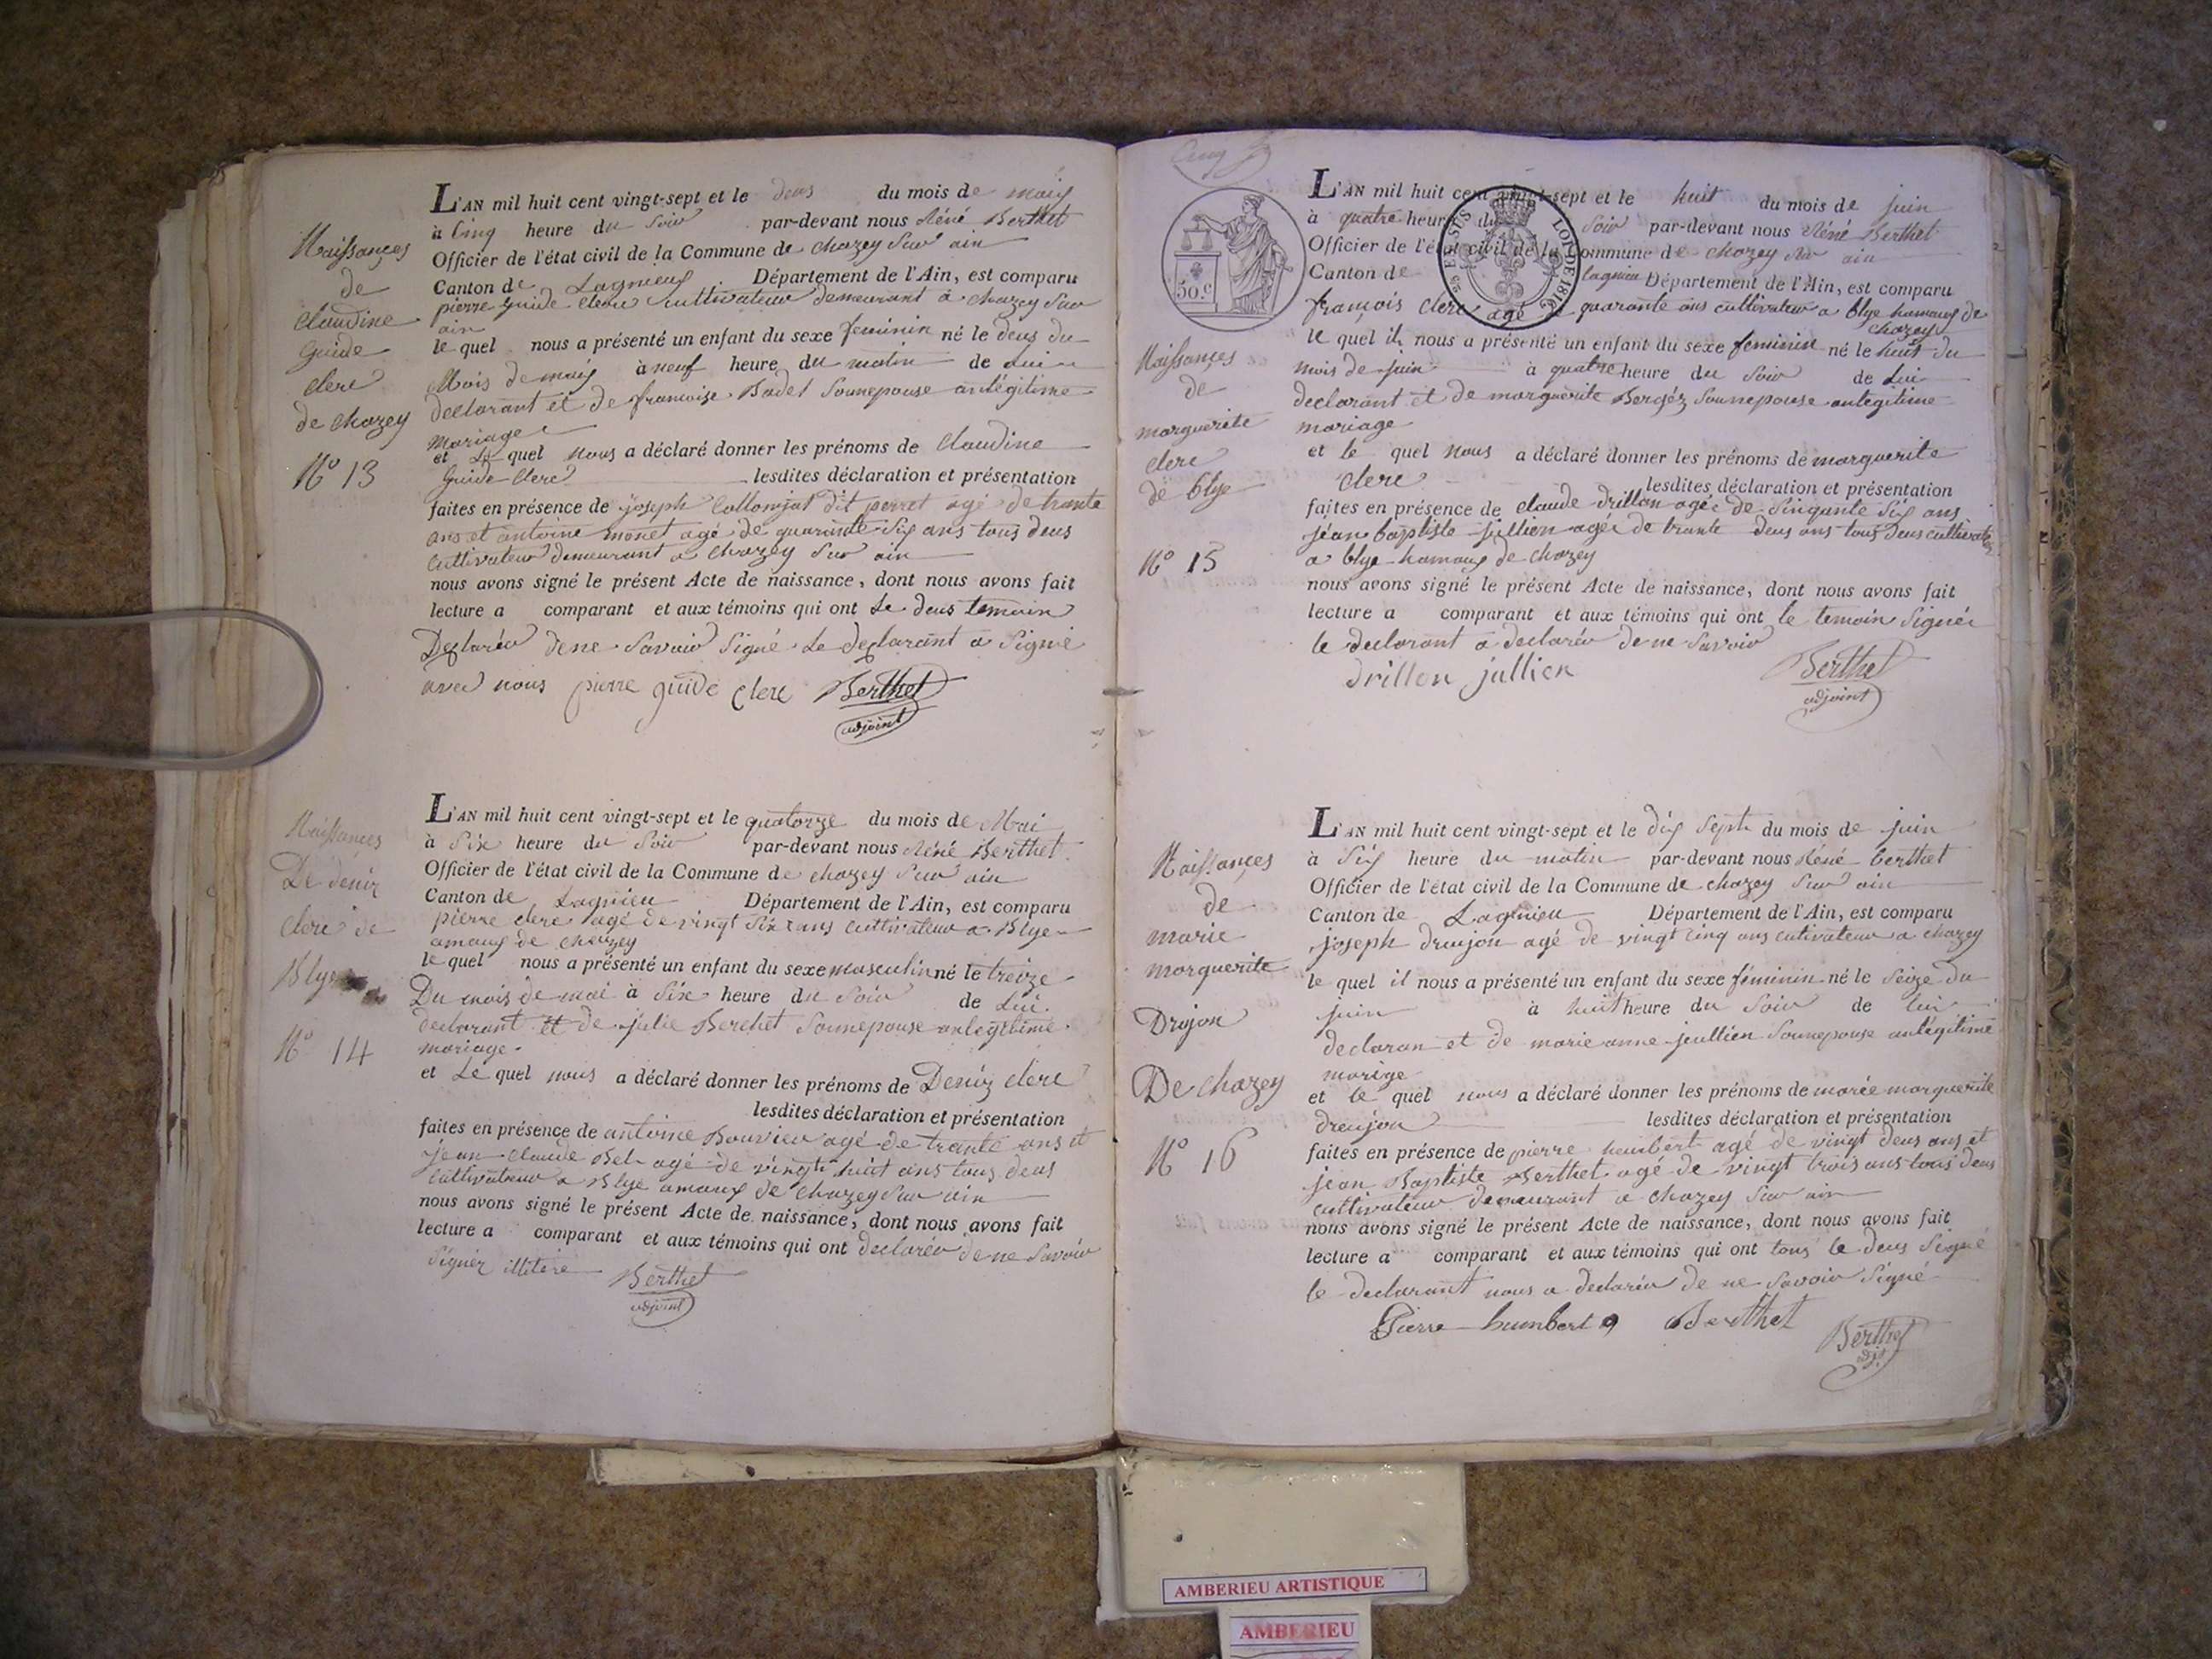 Naissances
de
claudine
guide
clerc
de chazey
N° 13
L'AN mil huit cent vingt-sept et le deus du mois de maij
à Cinq heure du soir par-devant nous Réné Berthet
Officier de l'état civil de la Commune de chazey sur ain
Canton de Lagnieu Département de l'Ain, est comparu
pierre guide clerc cultivateur demeurant a chazey sur
ain
le quel nous a présenté un enfant du sexe feminin né le deus du
Mois de maij à neuf heure du matin de Lui
declarant et de francoise Badet Sonnepouse anlégitime
mariage
et Le quel nous a déclaré donner les prénoms de Claudine
Guide Clerc lesdites déclaration et présentation
faites en présence de joseph Collomjat dit perret agé de trante
ans et antoine monet agé de quarante six ans tous deus
cultivateur demeurant a chazey sur ain
nous avons signé le présent Acte de naissance, dont nous avons fait
lecture a comparant et aux témoins qui ont Le deus temoin
Declaréer dene savoir Signé Le declarant a Signié
avec nous pierre guide clerc Berthet
adjoint
Naissances
De deniz
clerc de
Blye
N° 14
L'AN mil huit cent vingt-sept et le quatorze du mois de Mai
à Six heure du Soir par-devant nous Réné Berthet
Officier de l'état civil de la Commune de chazey sur ain
Canton de Lagnieu Département de l'Ain, est comparu
pierre clerc agé de vingt six ans cultivateur a Blye
amaux de chazey
le quel nous a présenté un enfant du sexe masculin né le treize
Du mois de mai à Six heure du Soir de Lui
declarant et de julie Berchet Sonnepouse anlegitime
mariage
et Le quel nous a déclaré donner les prénoms de Deniz clerc
lesdites déclaration et présentation
faites en présence de antoine Bouvier agé de trante ans et
jean claude Bel agé de vingt huit ans tous deus
cultivateur a Blye amaux de chazey sur ain
nous avons signé le présent Acte de naissance, dont nous avons fait
lecture a comparant et aux témoins qui ont declaréer de ne Savoir
Signer illitere Berthet
adjoint
50.c
LOI DE 1816
Naissances
de
marguerite
clerc
de blye
N° 15
L'AN mil huit cent vingt-sept et le huit du mois de juin
à quatre heure du Soir par-devant nous Réné Berthet
Officier de l'état civil de la Commune de chazey sur ain
Canton de lagnieu Département de l'Ain, est comparu
françois clerc agé de quarante ans cultivateur a blye hamaux de
chazey
le quel il nous a présenté un enfant du sexe feminin né le huit du
mois de juin à quatre heure du Soir de Lui
declarant et de marguerite Bergéz Sonnepouse anlegitime
mariage
et le quel nous a déclaré donner les prénoms de marguerite
clerc lesdites déclaration et présentation
faites en présence de claude drillon agée de Sinquante Six ans
jéan baptiste jullien agée de trante deus ans tous deus cultivate
a blye hamaux de chazey
nous avons signé le présent Acte de naissance, dont nous avons fait
lecture a comparant et aux témoins qui ont le temoin Signér
le declarant a declaréer de ne Savoir
drillon jullien Berthet
adjoint
Naissances
de
marie
marguerite
Drojon
De chazey
N° 16
L'AN mil huit cent vingt-sept et le dix Sept du mois de juin
à Six heure du matin par-devant nous Réné berthet
Officier de l'état civil de la Commune de chazey sur ain
Canton de Lagnieu Département de l'Ain, est comparu
joseph dreujon agé de vingt cinq ans cutivateur a chazey
le quel il nous a présenté un enfant du sexe féminin né le Seize du
juin à huit heure du Soir de lui
declaran et de marie anne jeullien Sonnepouse anlégitime
marige
et le quel nous a déclaré donner les prénoms de marée marguerite
dreujon lesdites déclaration et présentation
faites en présence de pierre heunbert agé de vingt deus ans et
jean Baptiste Berthet agé de vingt trois ans tous deus
cultivateur demeurant a chazey sur ain
nous avons signé le présent Acte de naissance, dont nous avons fait
lecture a comparant et aux témoins qui ont tous le deus Signé
le declarant nous a declaréer de ne Savoir Signé
Pierre humbert Berthet Berthet
adjt
AMBERIEU ARTISTIQUE
AMBERIEU